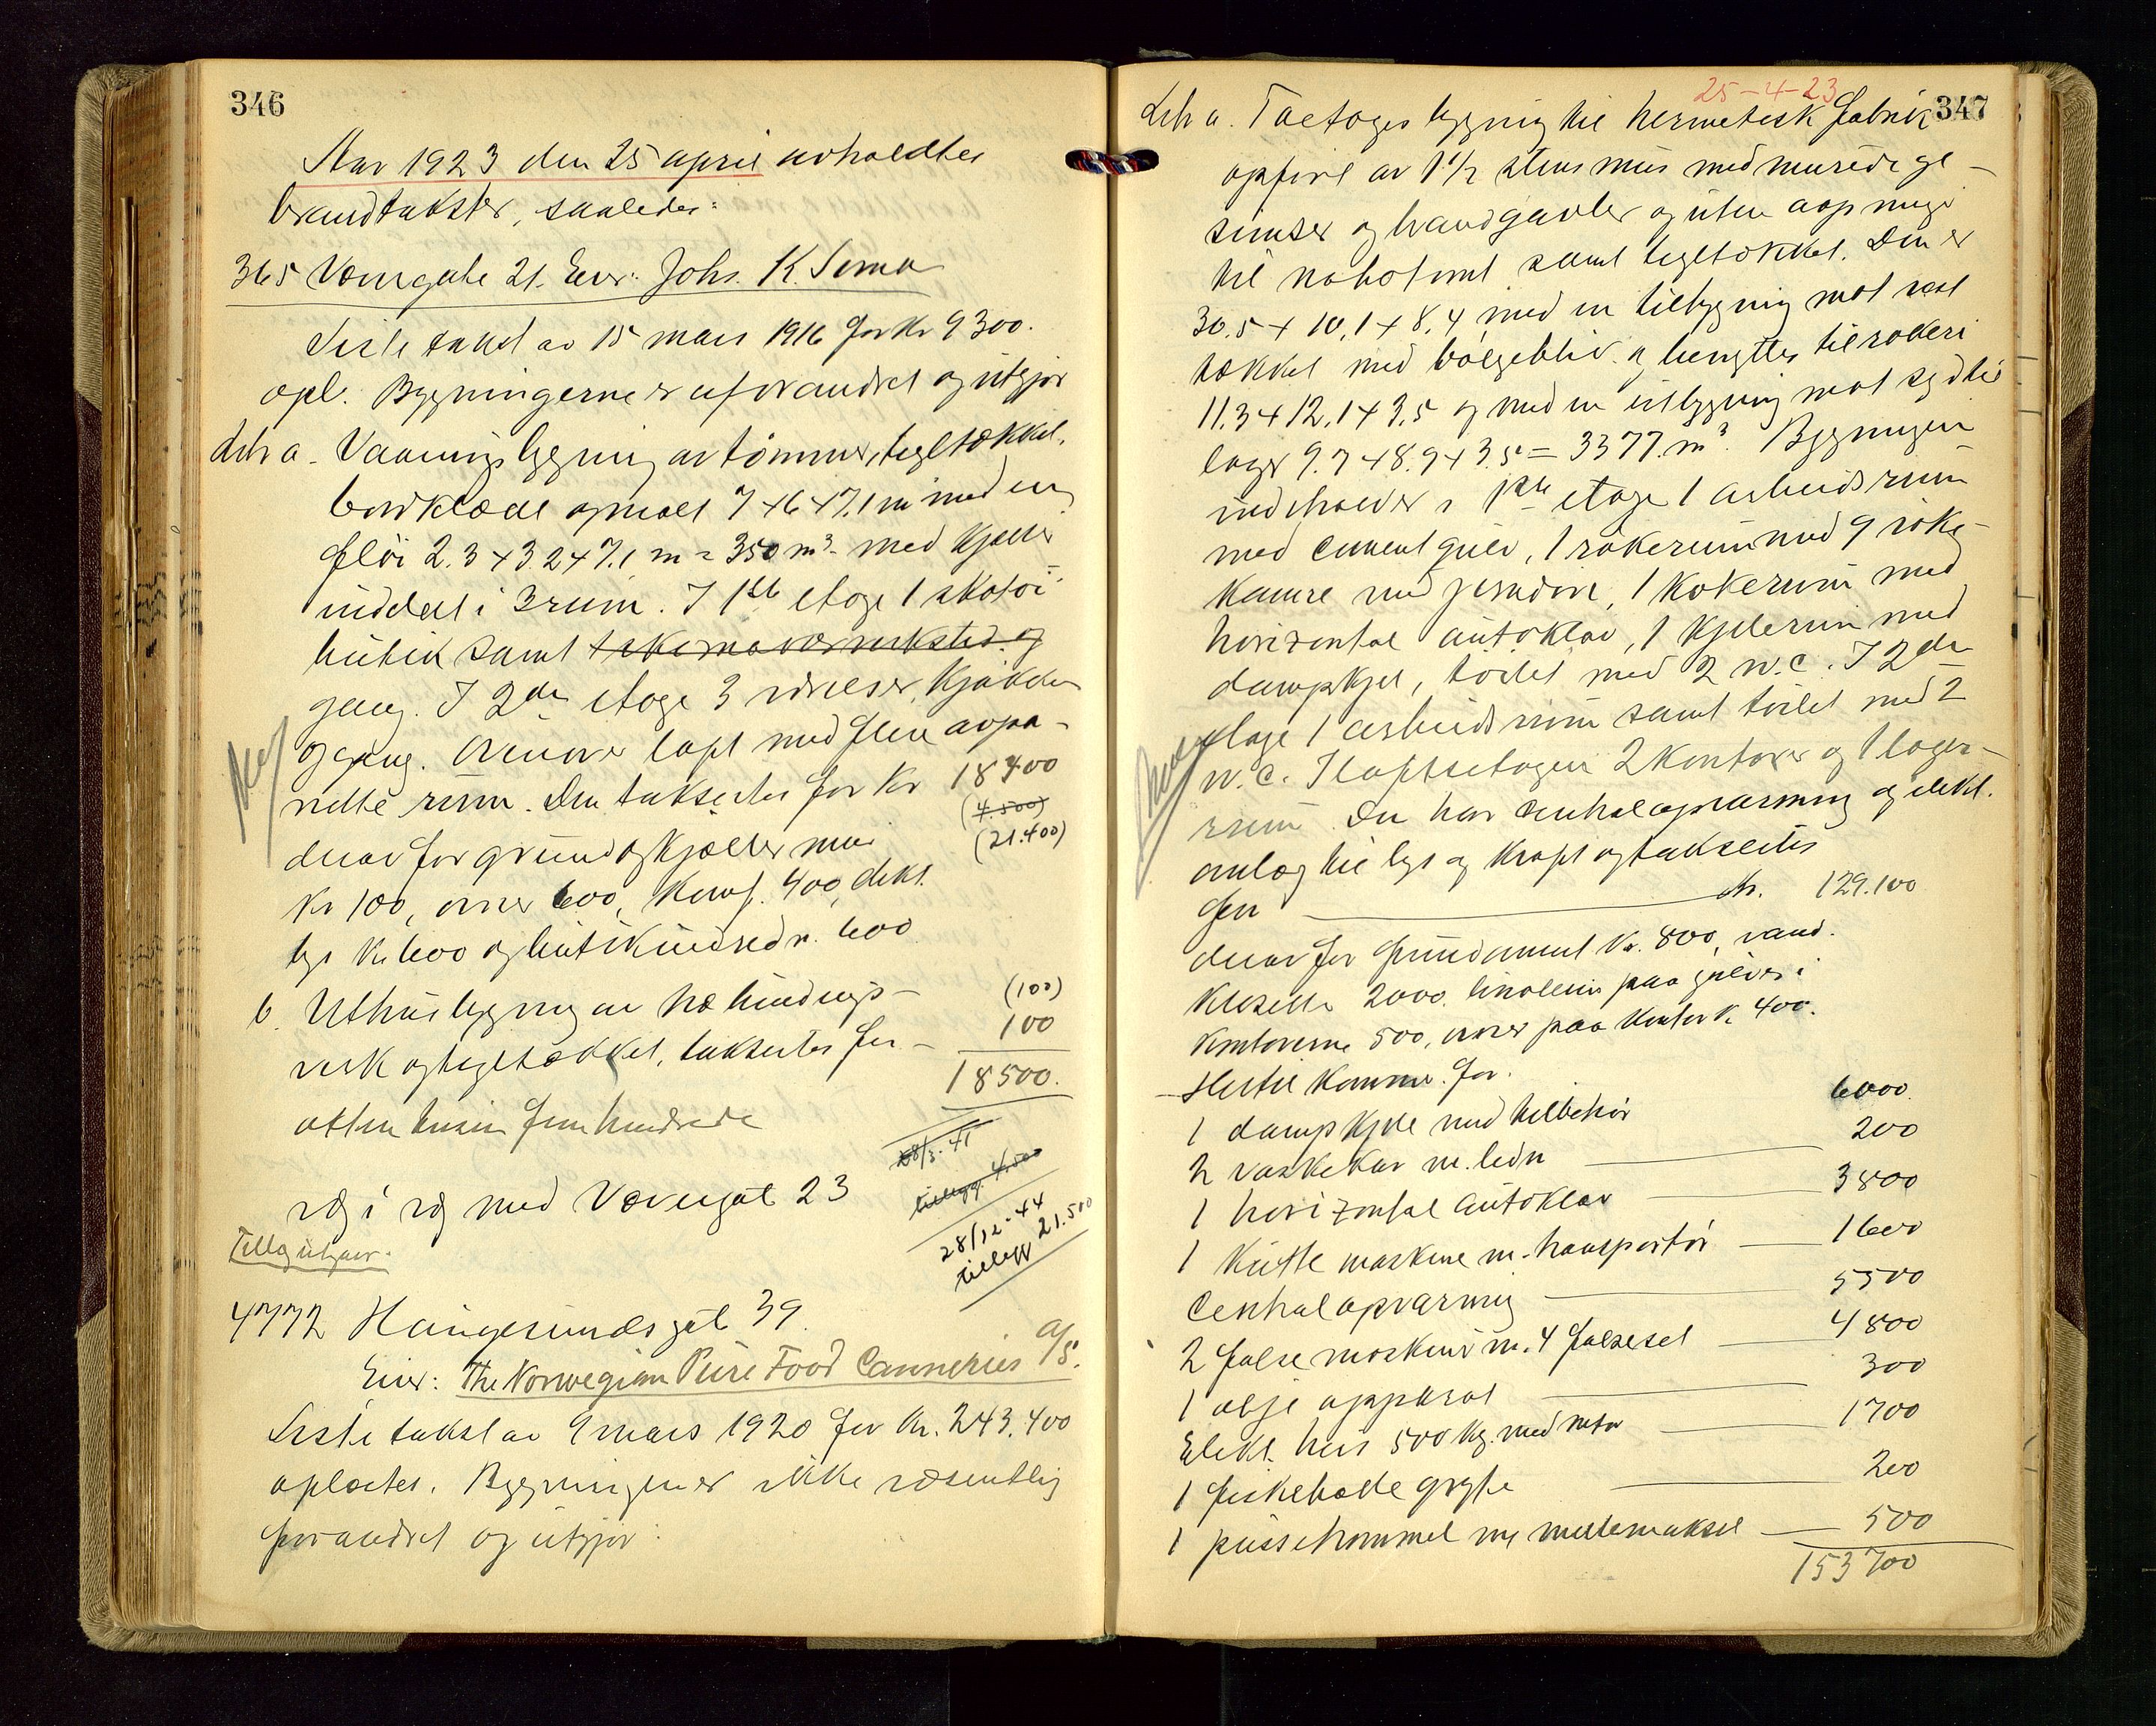 346
Aar 1923 den 25 april avholdtes
brandtakster, saaledes:
365 Vævergate 21. Eier: Johs. K. Sømo
Siste takst av 15 mars 1916 for Kr 9300.
opl. Bygningerne er uforandret og utgjør
Litr a. Vaaningsbygning av tömmer, tegltækket,
bordklædt og malt 7 + 6 + 7.1 m med en
flöi 2.3 + 3.2 + 7.1 m = 350 m³ med kjeller
inddelt i 3 rum. I 1ste etage 1 skotöi-
butik samt skomakerverksted og
gang. I 2den etage 3 værelser, kjökken
og gang. Ovenover loft med flere avpa-
nelte rum. Den taksertes for Kr 18400
(4.500)
derav for grund og kjælder mur (21.400)
Kr 100, ovner 600, komf. 400, elekt.
lys Kr 600 og butikindredn. 600
b. Uthusbygning av bæ bindings- (100)
verk og tegltækket, taksertes for - 100
18500.
atten tusen femhundrede
28/3-41
tillegg 4.500
væg i væg med Vævergat 23
28/12-44
tillegg 21.500
Tillæg utgaar.
4772 Haugesundsgat 39.
Eier: The Norwegian Pure Food Canneries A/S.
Siste takst av 9 mars 1920 for Kr. 243.400
oplæstes. Bygningen er ikke væsentlig
forandret og utgjør:
25-4-23
347
Litr a. Toetages bygning til hermetisk fabrik
opført av 1 1/2 stens mur med murede ge-
simser og brandgavler og uten aapninger
til nabotomt samt tegltækket. Den er
30.5 + 10.1 + 8.4 med en tilbygning mot vest
tækket med bølgeblik og benyttes til røkeri
11.3 + 12.1 + 3.5 og med en utbygning mot syd til
lager 9.7 + 8.9 + 3.5 = 3377 m³. Bygningen
indeholder i 1ste etage 1 arbeidsrum
med cementgulv, 1 røkerum med 9 røke-
kamre med jerndöre, 1 kokerum med
horizontal autoklav, 1 kjelerum med
dampkjel, toilet med 2 w.c. I 2den
etage 1 arbeidsrum samt toilet med 2
w.c. I loftsetagen 2 kontorer og 1 lager-
rum. Den har centralopvarming og elekt.
anlæg til lys og kraft og taksertes
for Kr. 129.100
derav for fundament Kr. 800, vand-
klosetter 2000. linoleum paa gulver i
kontorerne 500, ovner paa kontor Kr 400.
- Hertil kommer for.
1 dampkjele med tilbehör 6000
2 vaskekar m. ledn 200
1 horizontal autoklav 3800
1 kutte maskine m. transportör 1600
Centralopvarming 5500
2 false maskiner m. 4 falsesæt 4800
1 olje apparat 300
Elekt. heis 500 kg. med motor 1700
1 fiskebolle gryte 200
1 pussetrommel m mellemaksel 500
153700